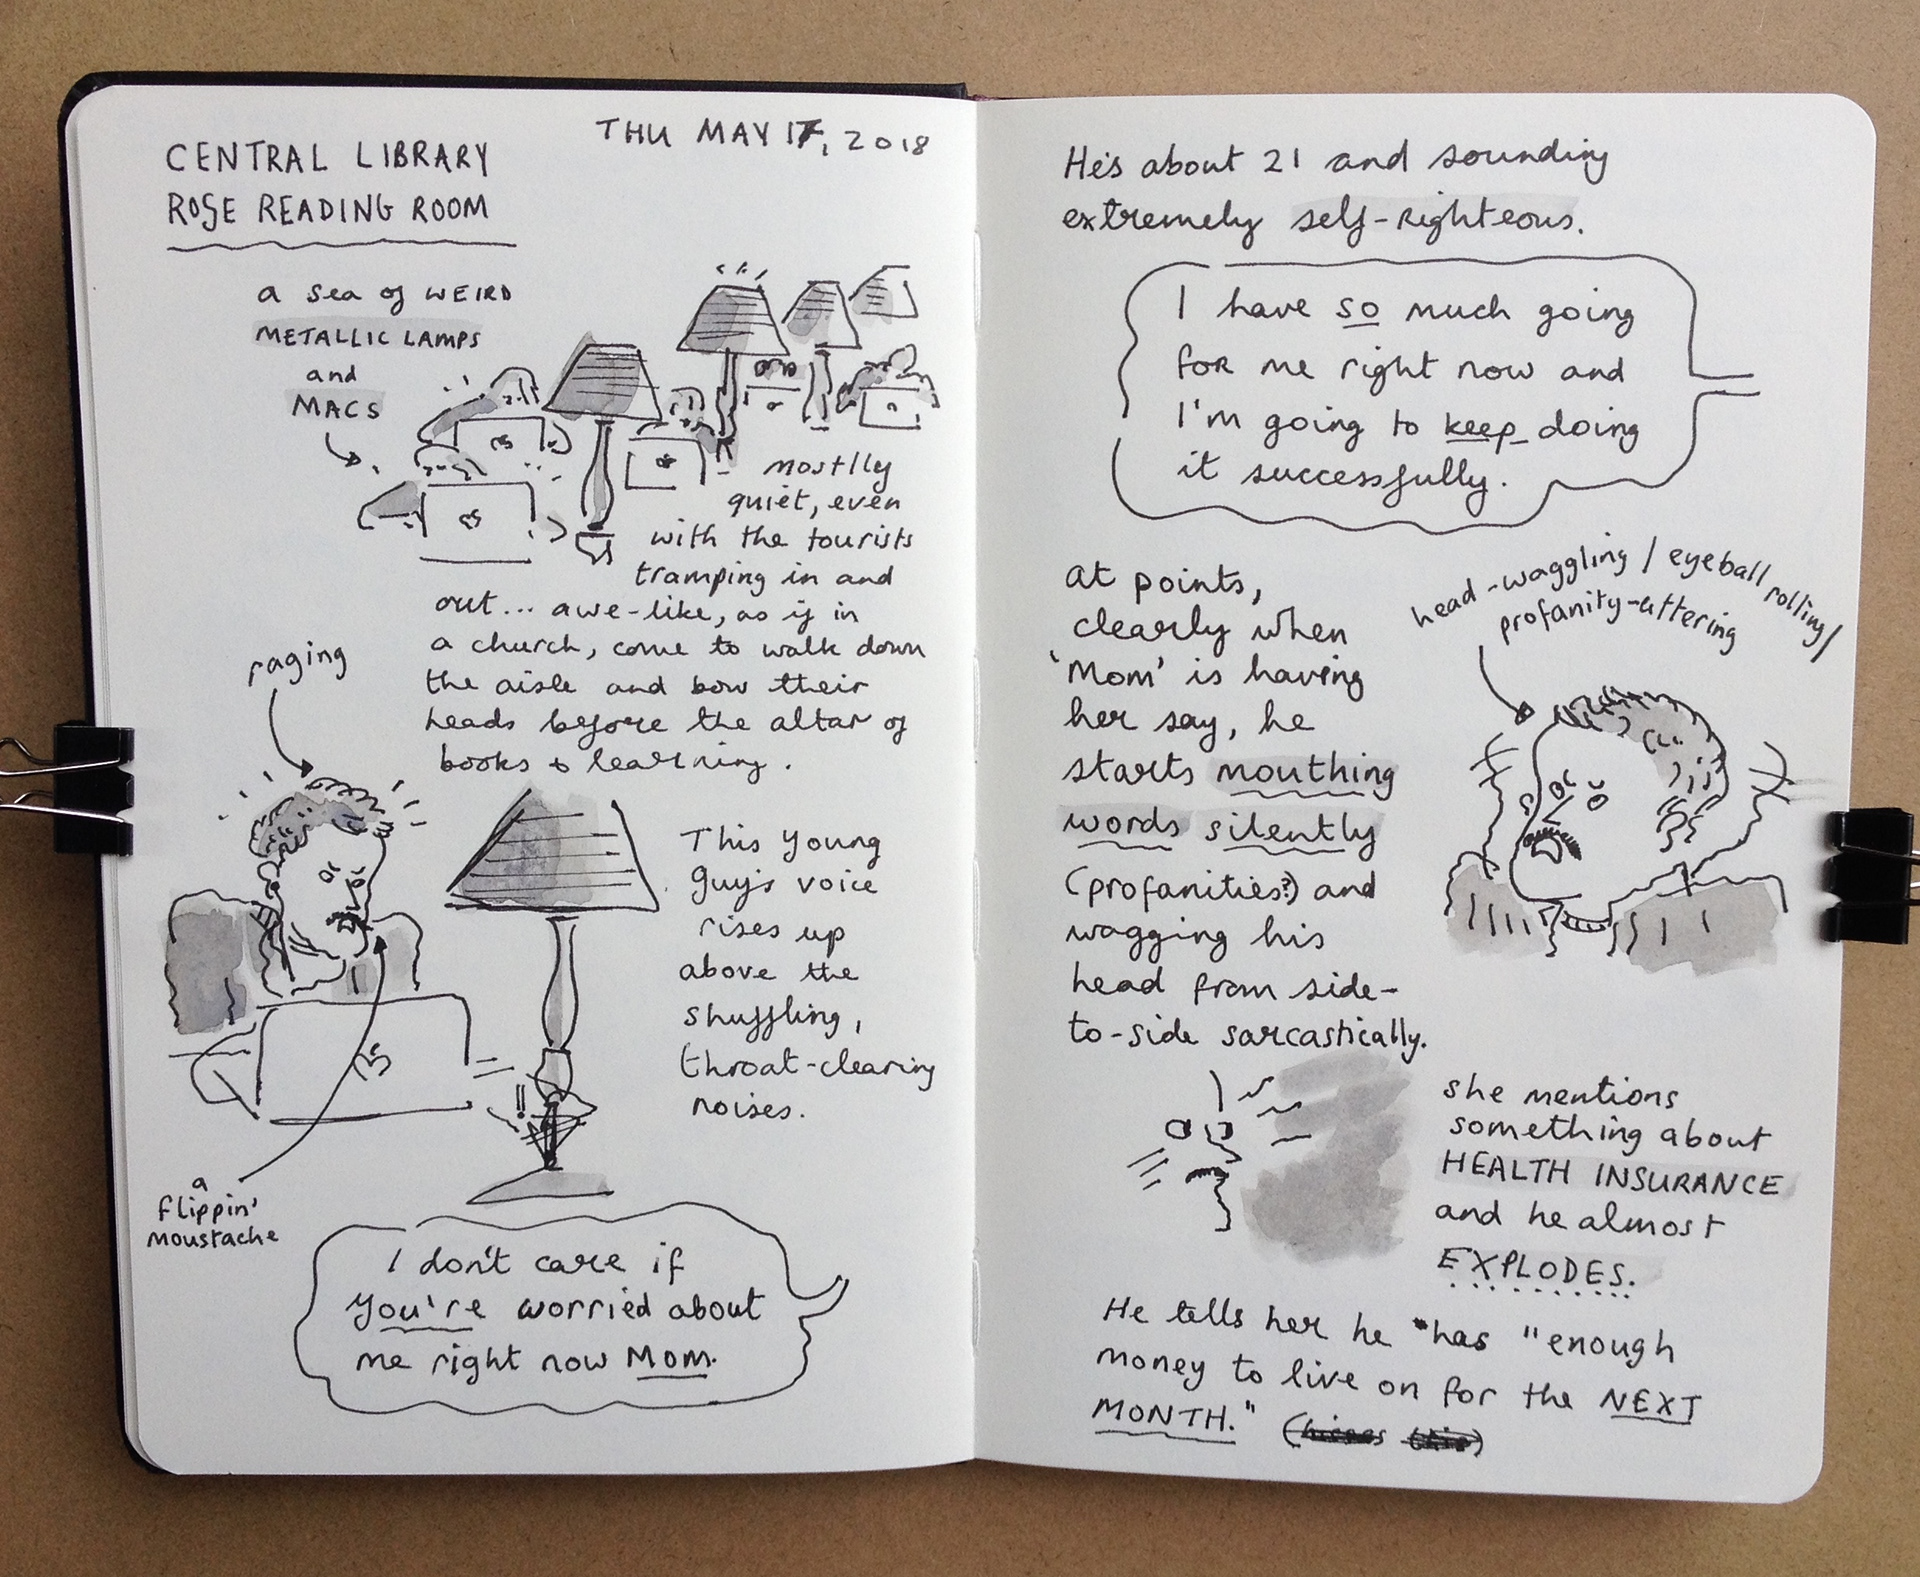 THU MAY 17, 2018
CENTRAL LIBRARY
ROSE READING ROOM
a sea of WEIRD
METALLIC LAMPS
and
MACS
mostlly
quiet, even
with the tourists
tramping in and
out... awe-like, as if in
a church, come to walk down
the aisle and bow their
heads before the altar of
books & learning.
raging
This young
guy's voice
rises up
above the
shuffling,
throat-clearing
noises.
!!
a
flippin'
moustache
I don't care if
you're worried about
me right now Mom.
He's about 21 and sounding
extremely self-righteous.
I have so much going
for me right now and
I'm going to keep doing
it successfully.
at points,
clearly when
'Mom' is having
her say, he
starts mouthing
words silently
(profanities?) and
wagging his
head from side-
to-side sarcastically.
head-waggling / eyeball rolling/
profanity-uttering
she mentions
something about
HEALTH INSURANCE
and he almost
EXPLODES.
He tells her he has "enough
money to live on for the NEXT
MONTH."